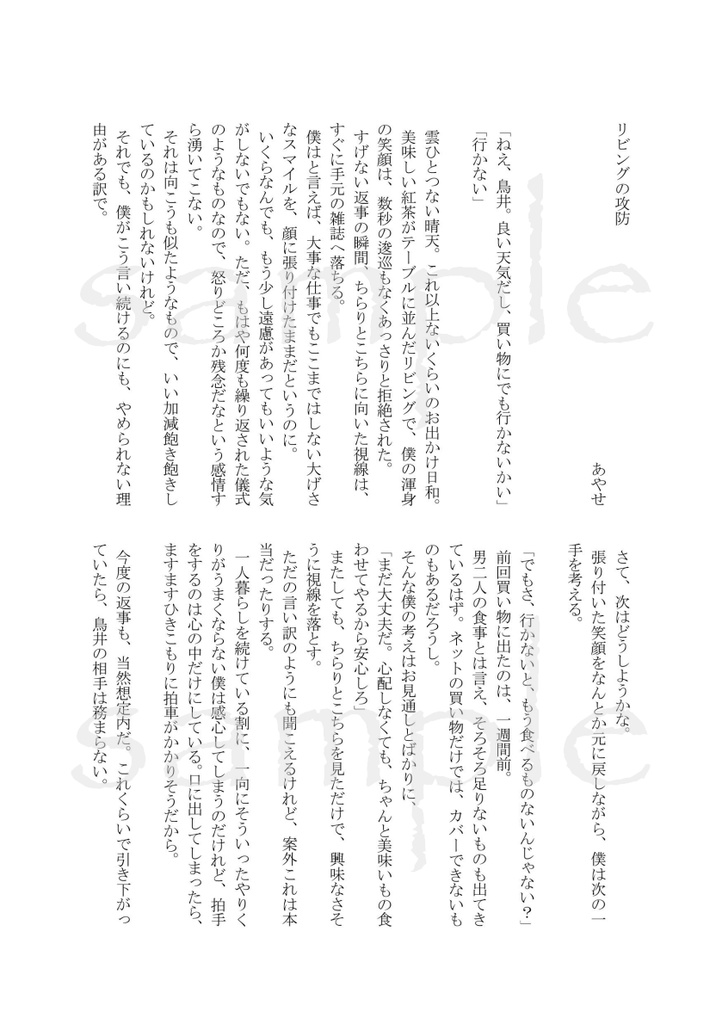 リビングの攻防
あやせ
「ねえ、鳥井。良い天気だし、買い物にでも行かないかい」
「行かない」
雲ひとつない晴天。これ以上ないくらいのお出かけ日和。
美味しい紅茶がテーブルに並んだリビングで、僕の渾身
の笑顔は、数秒の逡巡もなくあっさりと拒絶された。
すげない返事の瞬間、ちらりとこちらに向いた視線は、
すぐに手元の雑誌へ落ちる。
僕はと言えば、大事な仕事でもここまではしない大げさ
なスマイルを、顔に張り付けたままだというのに。
いくらなんでも、もう少し遠慮があってもいいような気
がしないでもない。ただ、もはや何度も繰り返された儀式
のようなものなので、怒りどころか残念だなという感情す
ら湧いてこない。
それは向こうも似たようなもので、いい加減飽き飽きし
ているのかもしれないけれど。
それでも、僕がこう言い続けるのにも、やめられない理
由がある訳で。
さて、次はどうしようかな。
張り付いた笑顔をなんとか元に戻しながら、僕は次の一
手を考える。
「でもさ、行かないと、もう食べるものないんじゃない？」
前回買い物に出たのは、一週間前。
男二人の食事とは言え、そろそろ足りないものも出てき
ているはず。ネットの買い物だけでは、カバーできないも
のもあるだろうし。
そんな僕の考えはお見通しとばかりに、
「まだ大丈夫だ。心配しなくても、ちゃんと美味いもの食
わせてやるから安心しろ」
またしても、ちらりとこちらを見ただけで、興味なさそ
うに視線を落とす。
ただの言い訳のようにも聞こえるけれど、案外これは本
当だったりする。
一人暮らしを続けている割に、一向にそういったやりく
りがうまくならない僕は感心してしまうのだけれど、拍手
をするのは心の中だけにしている。口に出してしまったら、
ますますひきこもりに拍車がかかりそうだから。
今度の返事も、当然想定内だ。これくらいで引き下がっ
ていたら、鳥井の相手は務まらない。
sample
sample